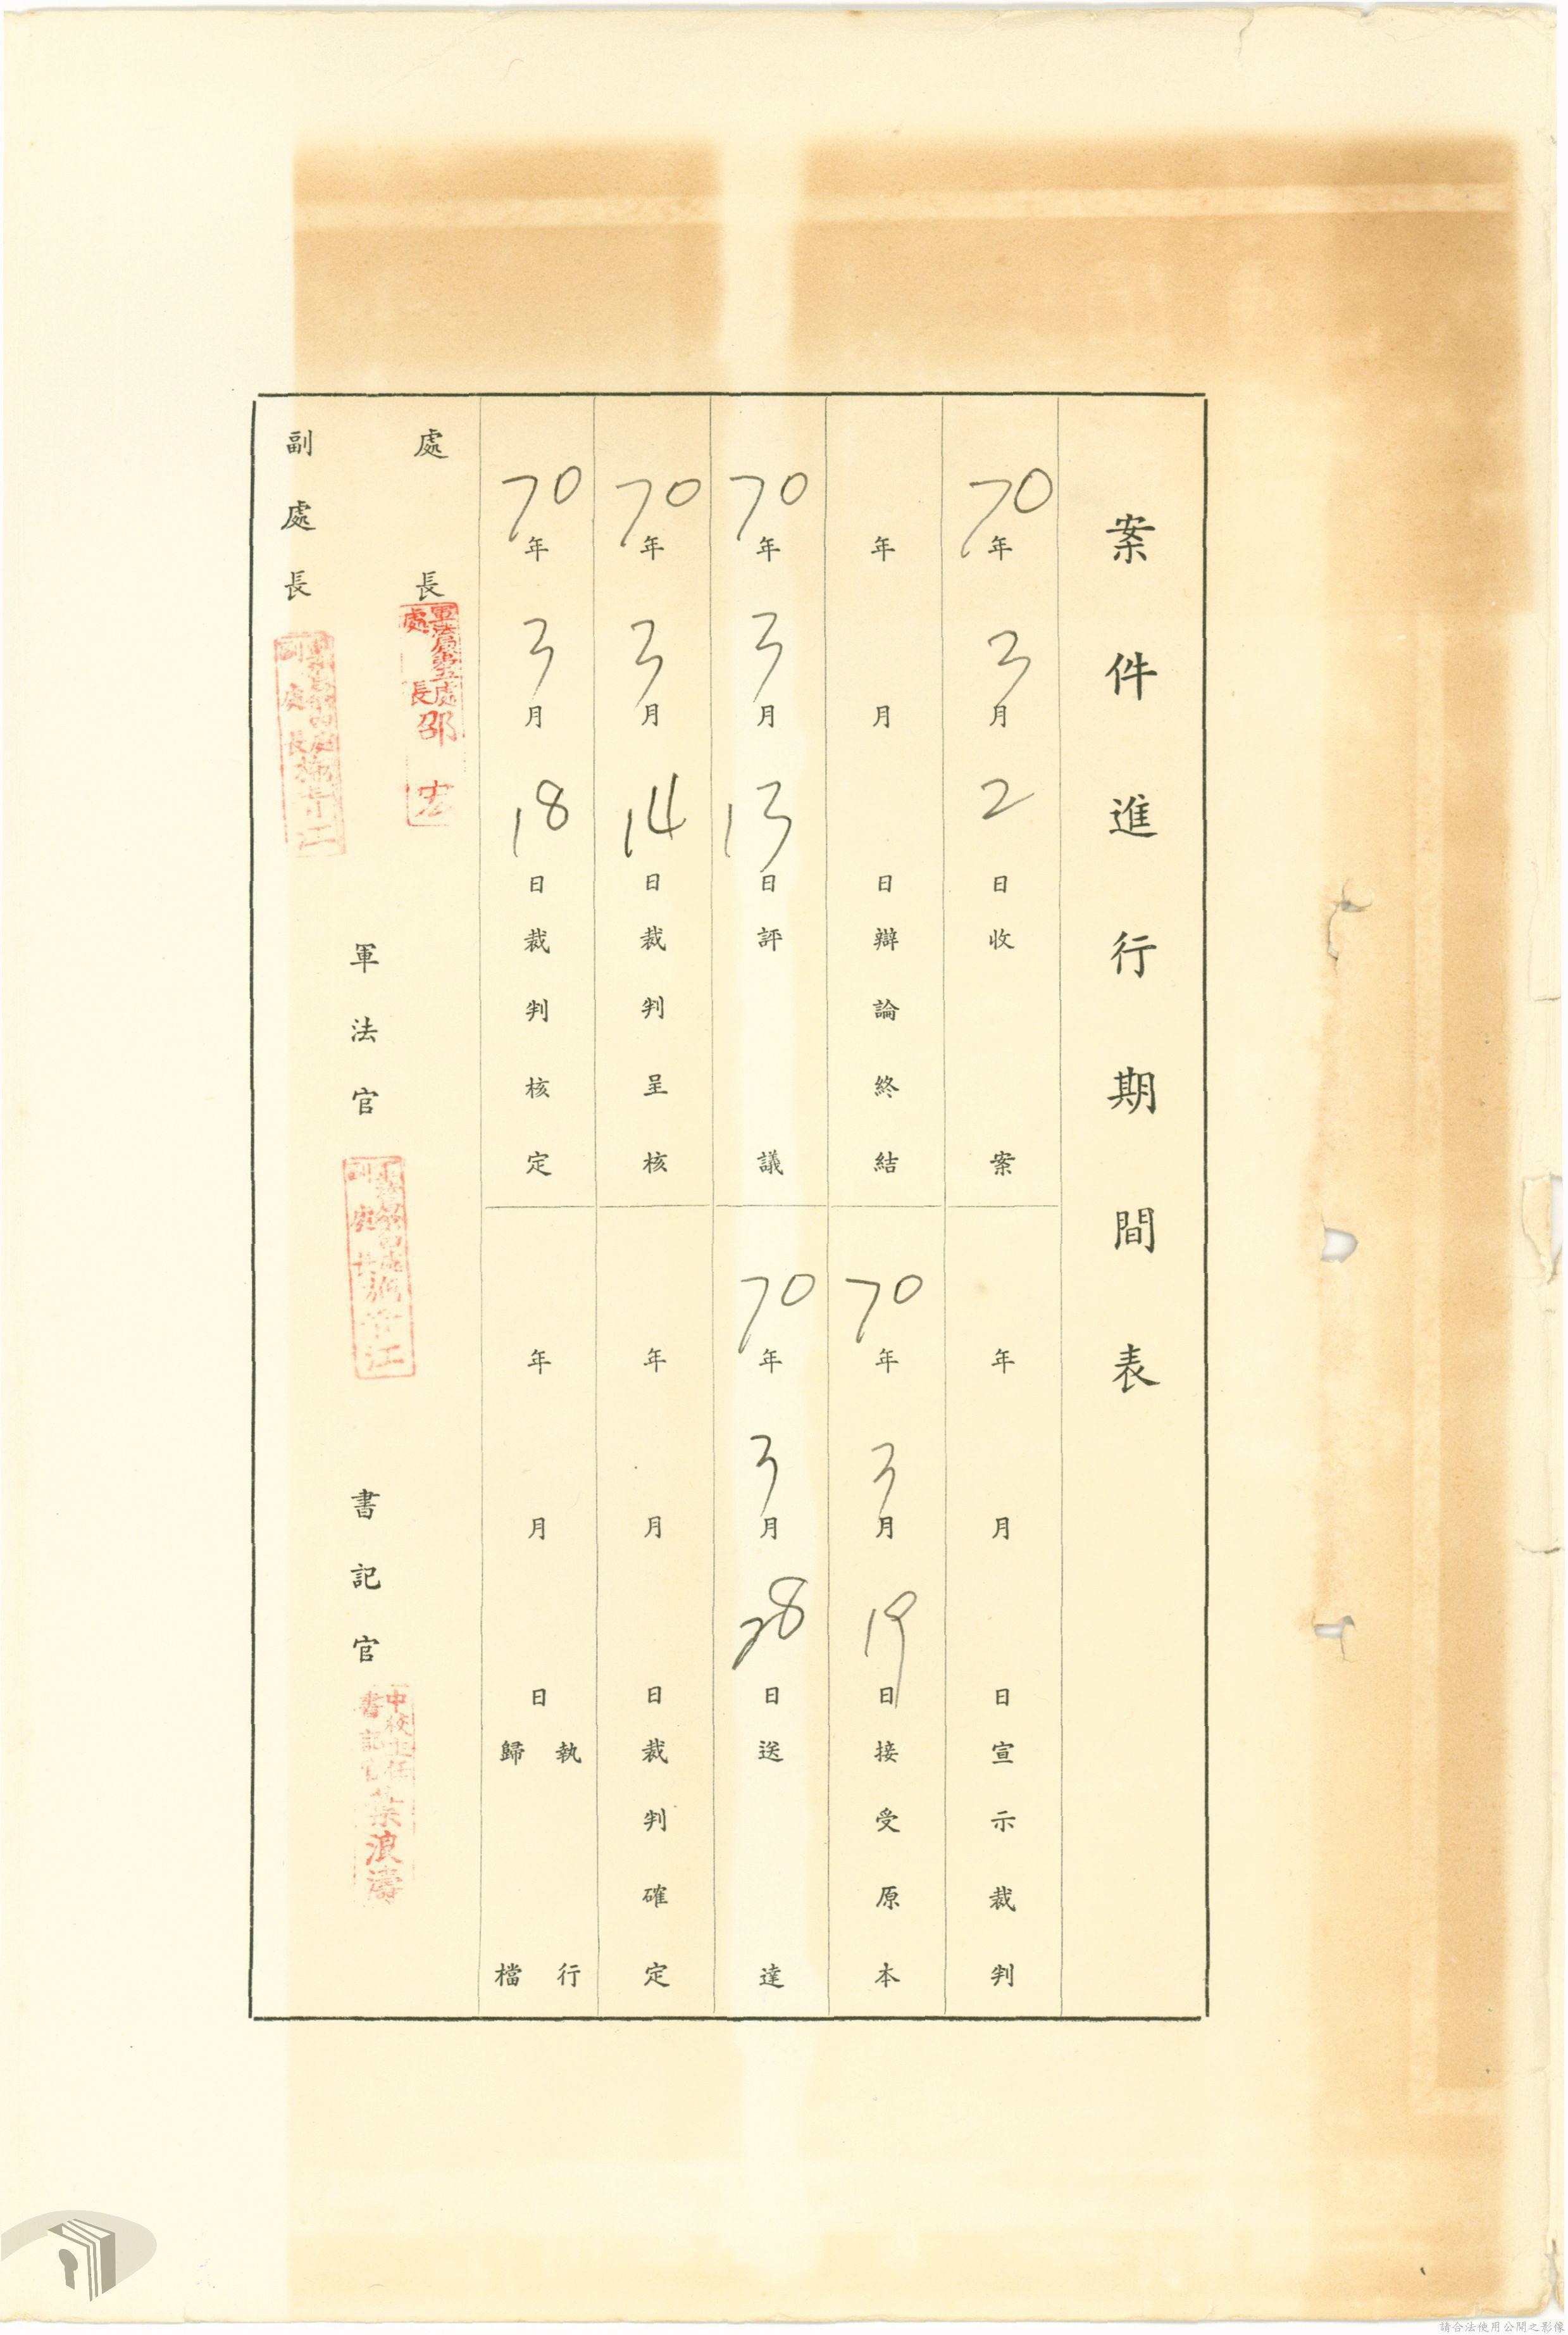 案件進行期間表
70年3月2日收案
年月日宣示裁判
年月日辯論終結
70年3月19日接受原本
70年3月13日評議
70年3月28日送達
70年3月14日裁判呈核
年月日裁判確定
70年3月18日裁判核定
年月日執行歸檔
處長
軍法局第五處
處長邵
副處長
軍法官
書記官
中校主任
書記官
浪濤
請合法使用公開之影像